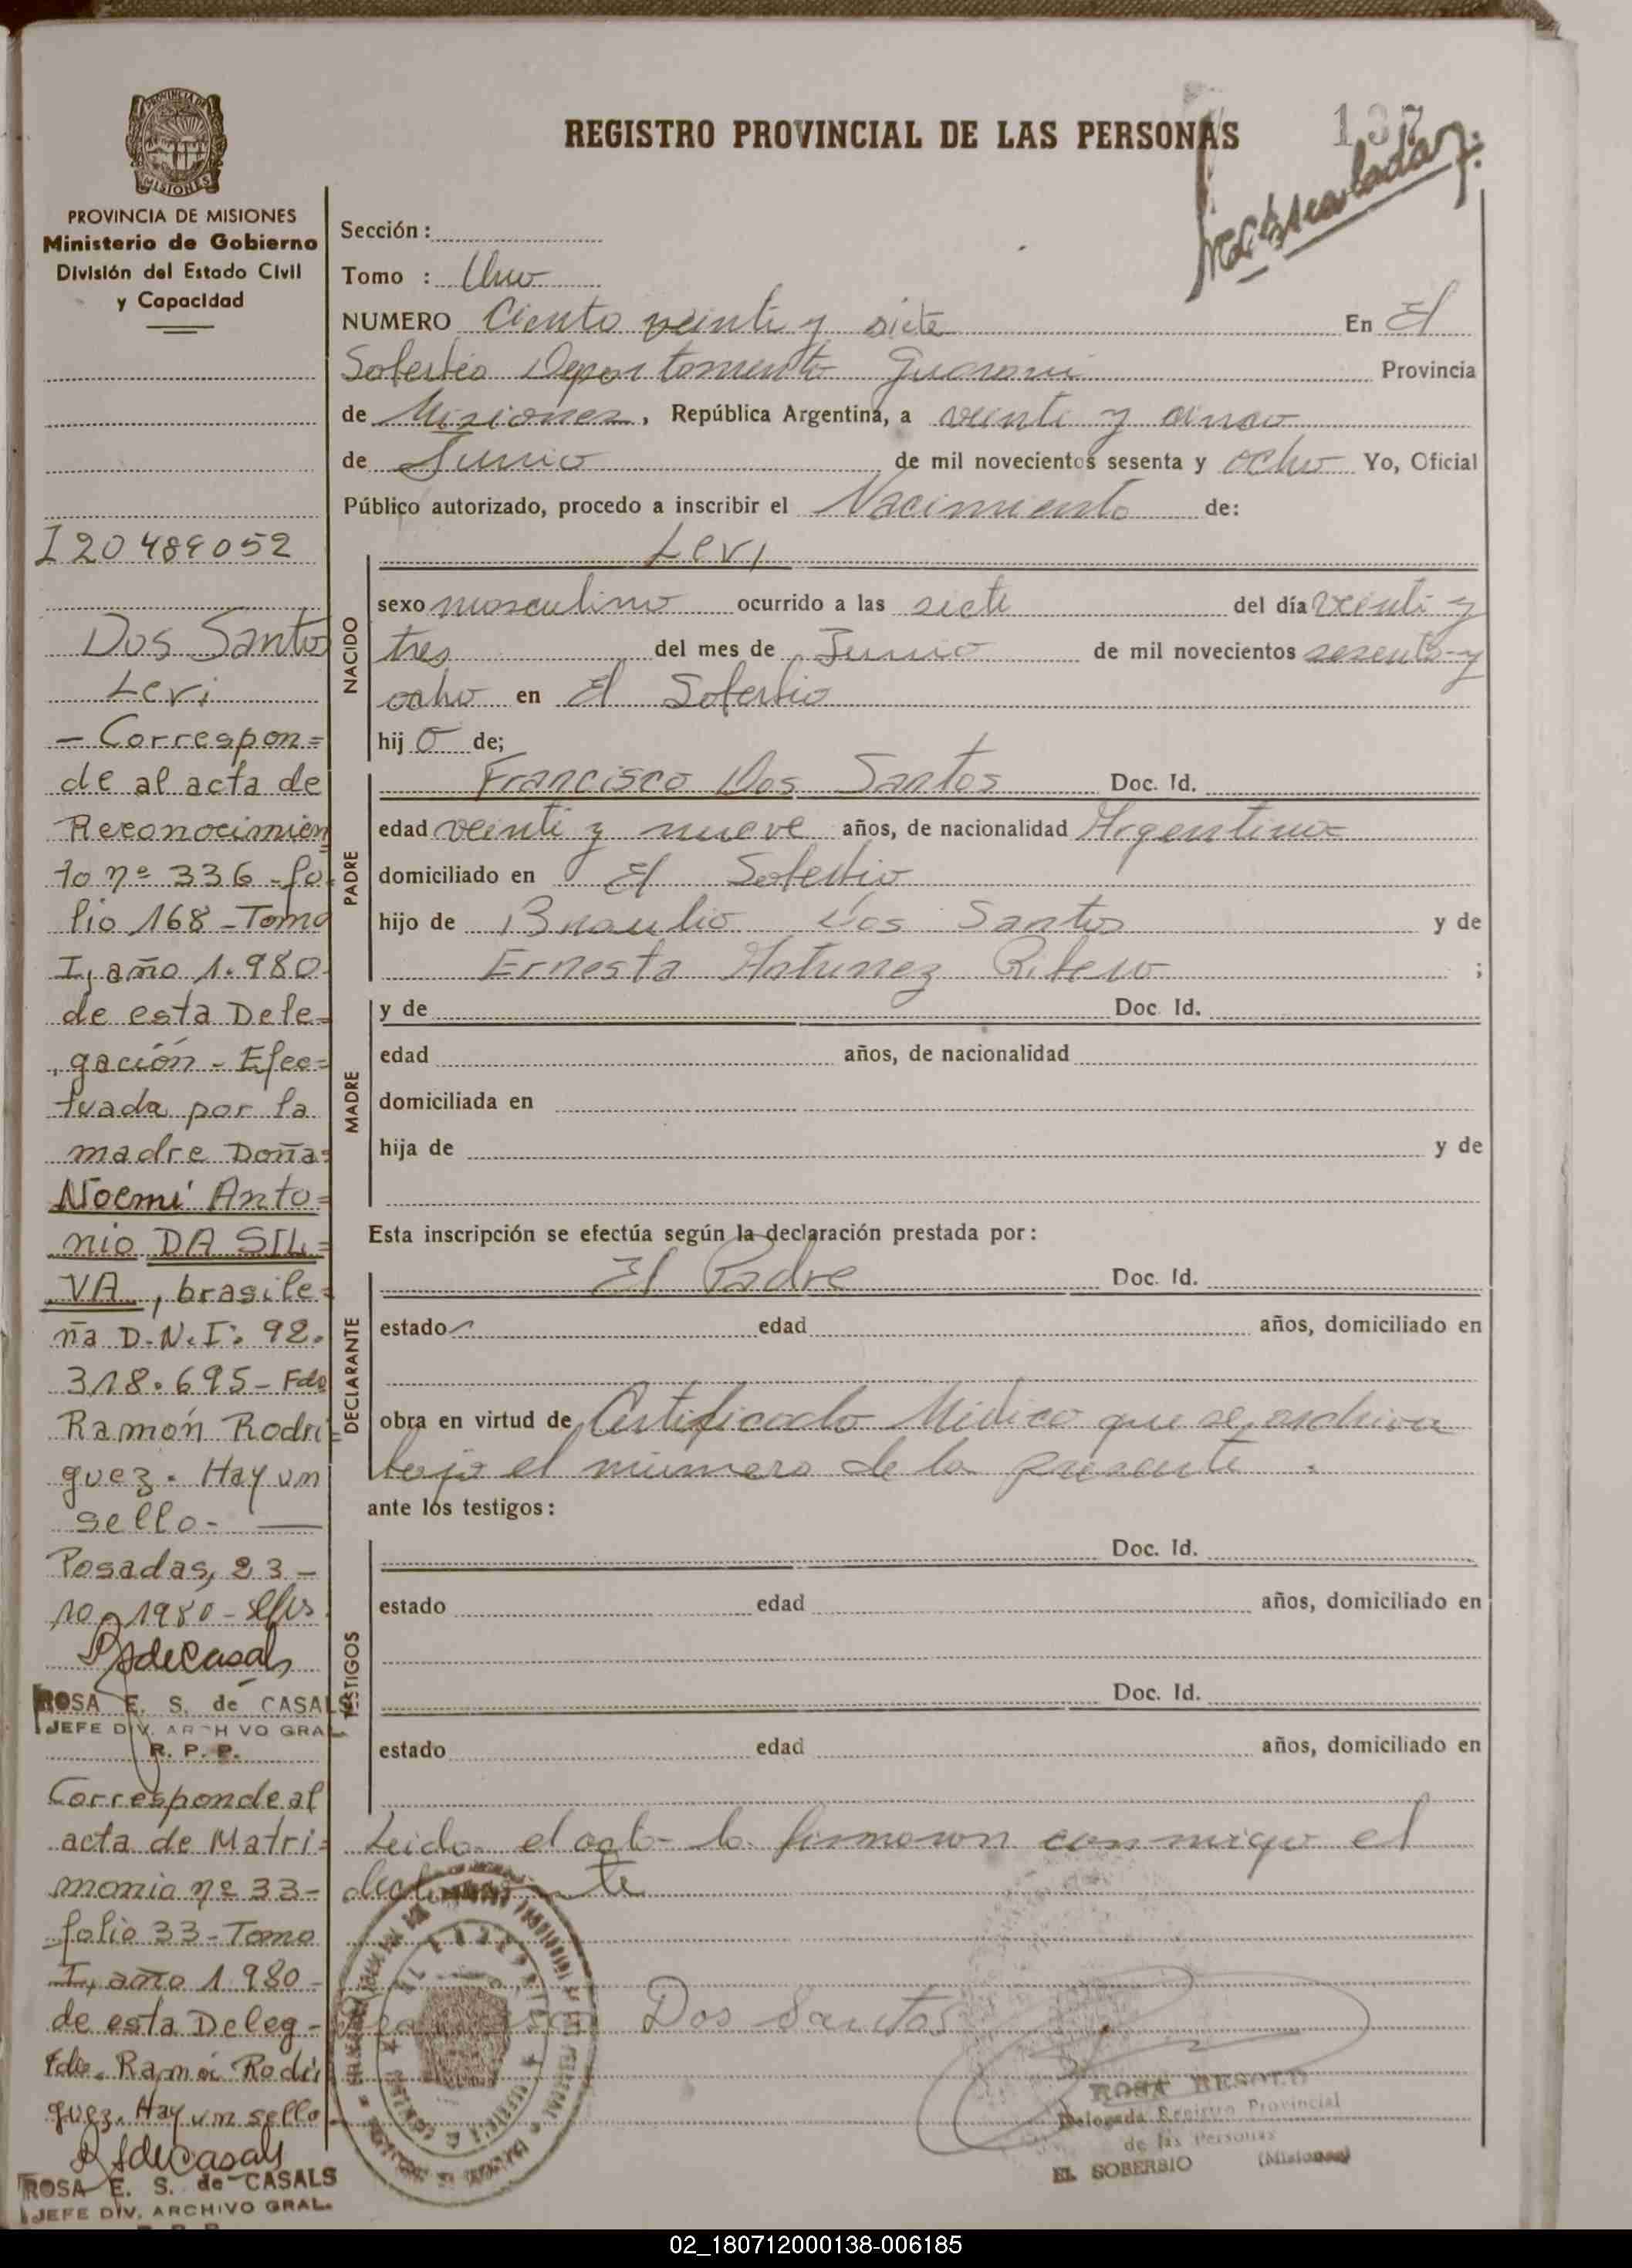 REGISTRO PROVINCIAL DE LAS PERSONAS
137
PROVINCIA DE MISIONES
Ministerio de Gobierno
División del Estado Civil
y Capacidad
I 20 489052
Dos Santos
Levi
- Correspon=
de al acta de
Reconocimien
to nº 336 - fo
lio 168 - Tomo
I, año 1.980
de esta Dele=
gación - Efec=
tuada por la
madre Doña
Noemí Anto=
nio DA SIL=
VA, brasile=
ña D.N.I: 92.
318.695 - Fdo
Ramón Rodri=
guez. Hay un
sello -
Posadas, 23 -
10 - 1980 -
RSdeCasals
ROSA E. S. de CASALS
JEFE DIV. ARCHIVO GRAL.
R. P. P.
Corresponde al
acta de Matri=
monio nº 33 -
folio 33 - Tomo
I, año 1.980 -
de esta Deleg -
Fdo. Ramón Rodri
guez. Hay un sello
RSdeCasals
ROSA E. S. de CASALS
JEFE DIV. ARCHIVO GRAL.
Sección :
Tomo : Uno
NUMERO Ciento veinte y siete En El
Soberbio Departamento Guarani Provincia
de Misiones, República Argentina, a veinte y cinco
de Junio de mil novecientos sesenta y ocho Yo, Oficial
Público autorizado, procedo a inscribir el Nacimiento de:
Levi
NACIDO
sexo masculino ocurrido a las siete del día veinti y
tres del mes de Junio de mil novecientos sesenta y
ocho en El Soberbio
hij o de;
PADRE
Francisco Dos Santos Doc. Id.
edad veinti y nueve años, de nacionalidad Argentino
domiciliado en El Soberbio
hijo de Braulio Dos Santos y de
Ernesta Antunez Ribero ;
MADRE
y de Doc. Id.
edad años, de nacionalidad
domiciliada en
hija de y de
Esta inscripción se efectúa según la declaración prestada por :
DECLARANTE
El Padre Doc. Id.
estado edad años, domiciliado en
obra en virtud de Certificado Médico que se archiva
bajo el número de la presente .
ante los testigos :
TESTIGOS
Doc. Id.
estado edad años, domiciliado en
Doc. Id.
estado edad años, domiciliado en
Leida el acta la firmaron conmigo el
declarante
Dos Santos
ROSA
Delegada Registro Provincial
de las Personas
EL SOBERBIO (Misiones)
02_180712000138-006185